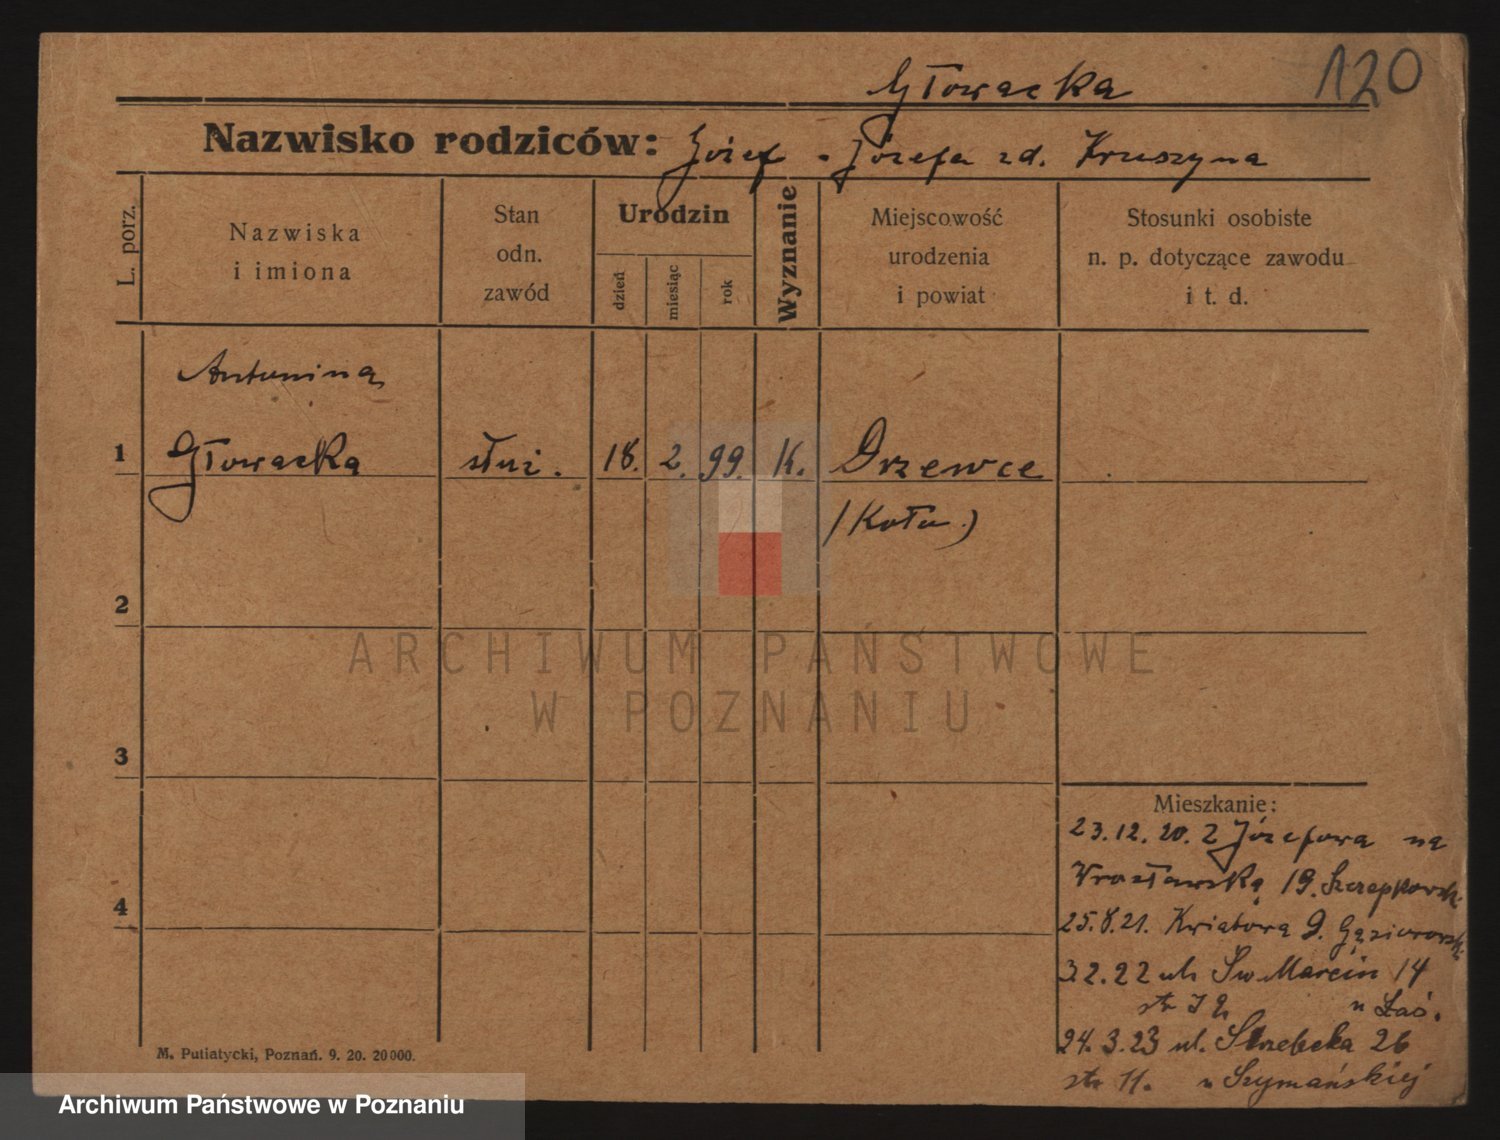 120
Głowacka
Nazwisko rodziców: Józef - Józefa zd. Kruszyna
L. porz.
Nazwiska
i imiona
Stan
odn.
zawód
Urodzin
dzień
miesiąc
rok
Wyznanie
Miejscowość
urodzenia
i powiat
Stosunki osobiste
n. p. dotyczące zawodu
i t. d.
Antonina
1 Głowacka służ. 18. 2. 99. K. Drzewce
(Koło)
2
ARCHIWUM PAŃSTWOWE
W POZNANIU
3
Mieszkanie:
23.12.20. z Józefowa na
Wrocławską 19. Szczepkowsk.
4
25.8.21. Kwiatowa 9. Gąsiorowsk.
3.2.22 ul. Św Marcin 14
24.3.23 ul. Strzelecka 26
str 11. u Szymańskiej
M. Putiatycki, Poznań. 9. 20. 20000.
Archiwum Państwowe w Poznaniu